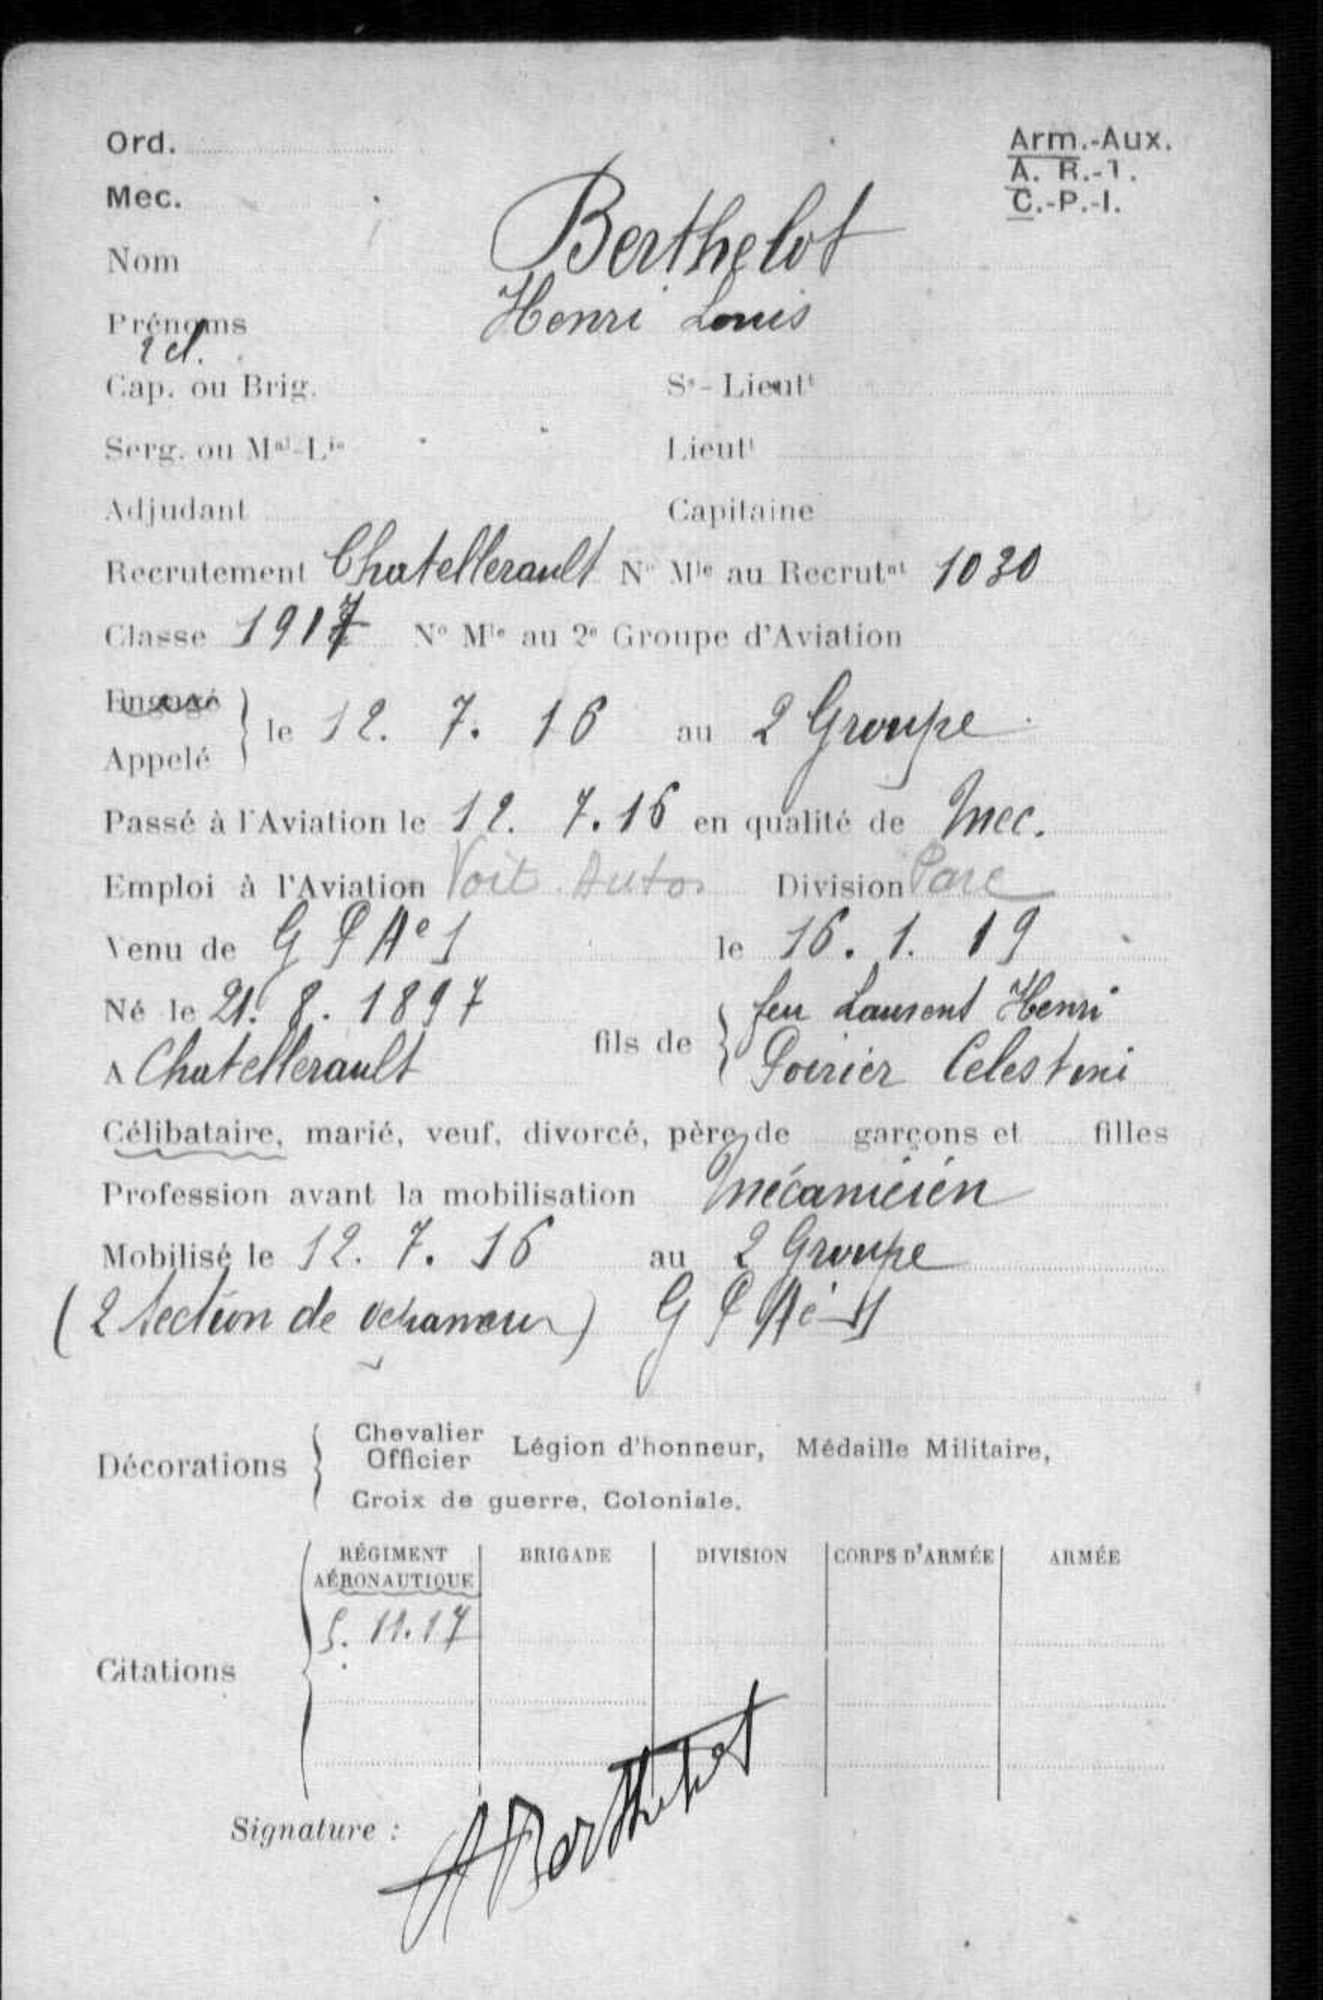 Ord.
Arm.-Aux.
A. R.-1.
Mec.
C.-P.-I.
Nom Berthelot
Prénoms Henri Louis
2 cl.
Cap. ou Brig. Ss- Lieutt
Serg. ou Mal-Lis Lieutt
Adjudant Capitaine
Recrutement Chatellerault No Mle au Recrutnt 1030
Classe 1917 No Mle au 2e Groupe d'Aviation
Engagé
le 12. 7. 16 au 2 Groupe
Appelé
Passé à l'Aviation le 12. 7.16 en qualité de Mec.
Emploi à l'Aviation Voit. Autos Division Parc
Venu de G P Ae 1 le 16. 1. 19
Né le 21. 8. 1897 feu Laurent Henri
fils de
A Chatellerault Poirier Celestini
Célibataire, marié, veuf, divorcé, père de garçons et filles
Profession avant la mobilisation mécanicien
Mobilisé le 12. 7. 16 au 2 Groupe
(2 section de) G P Aé 1
Chevalier
Officier Légion d'honneur, Médaille Militaire,
Décorations
Croix de guerre, Coloniale.
RÉGIMENT BRIGADE DIVISION CORPS D'ARMÉE ARMÉE
AÉRONAUTIQUE
5. 11.17
Citations
Signature : HBerthelot